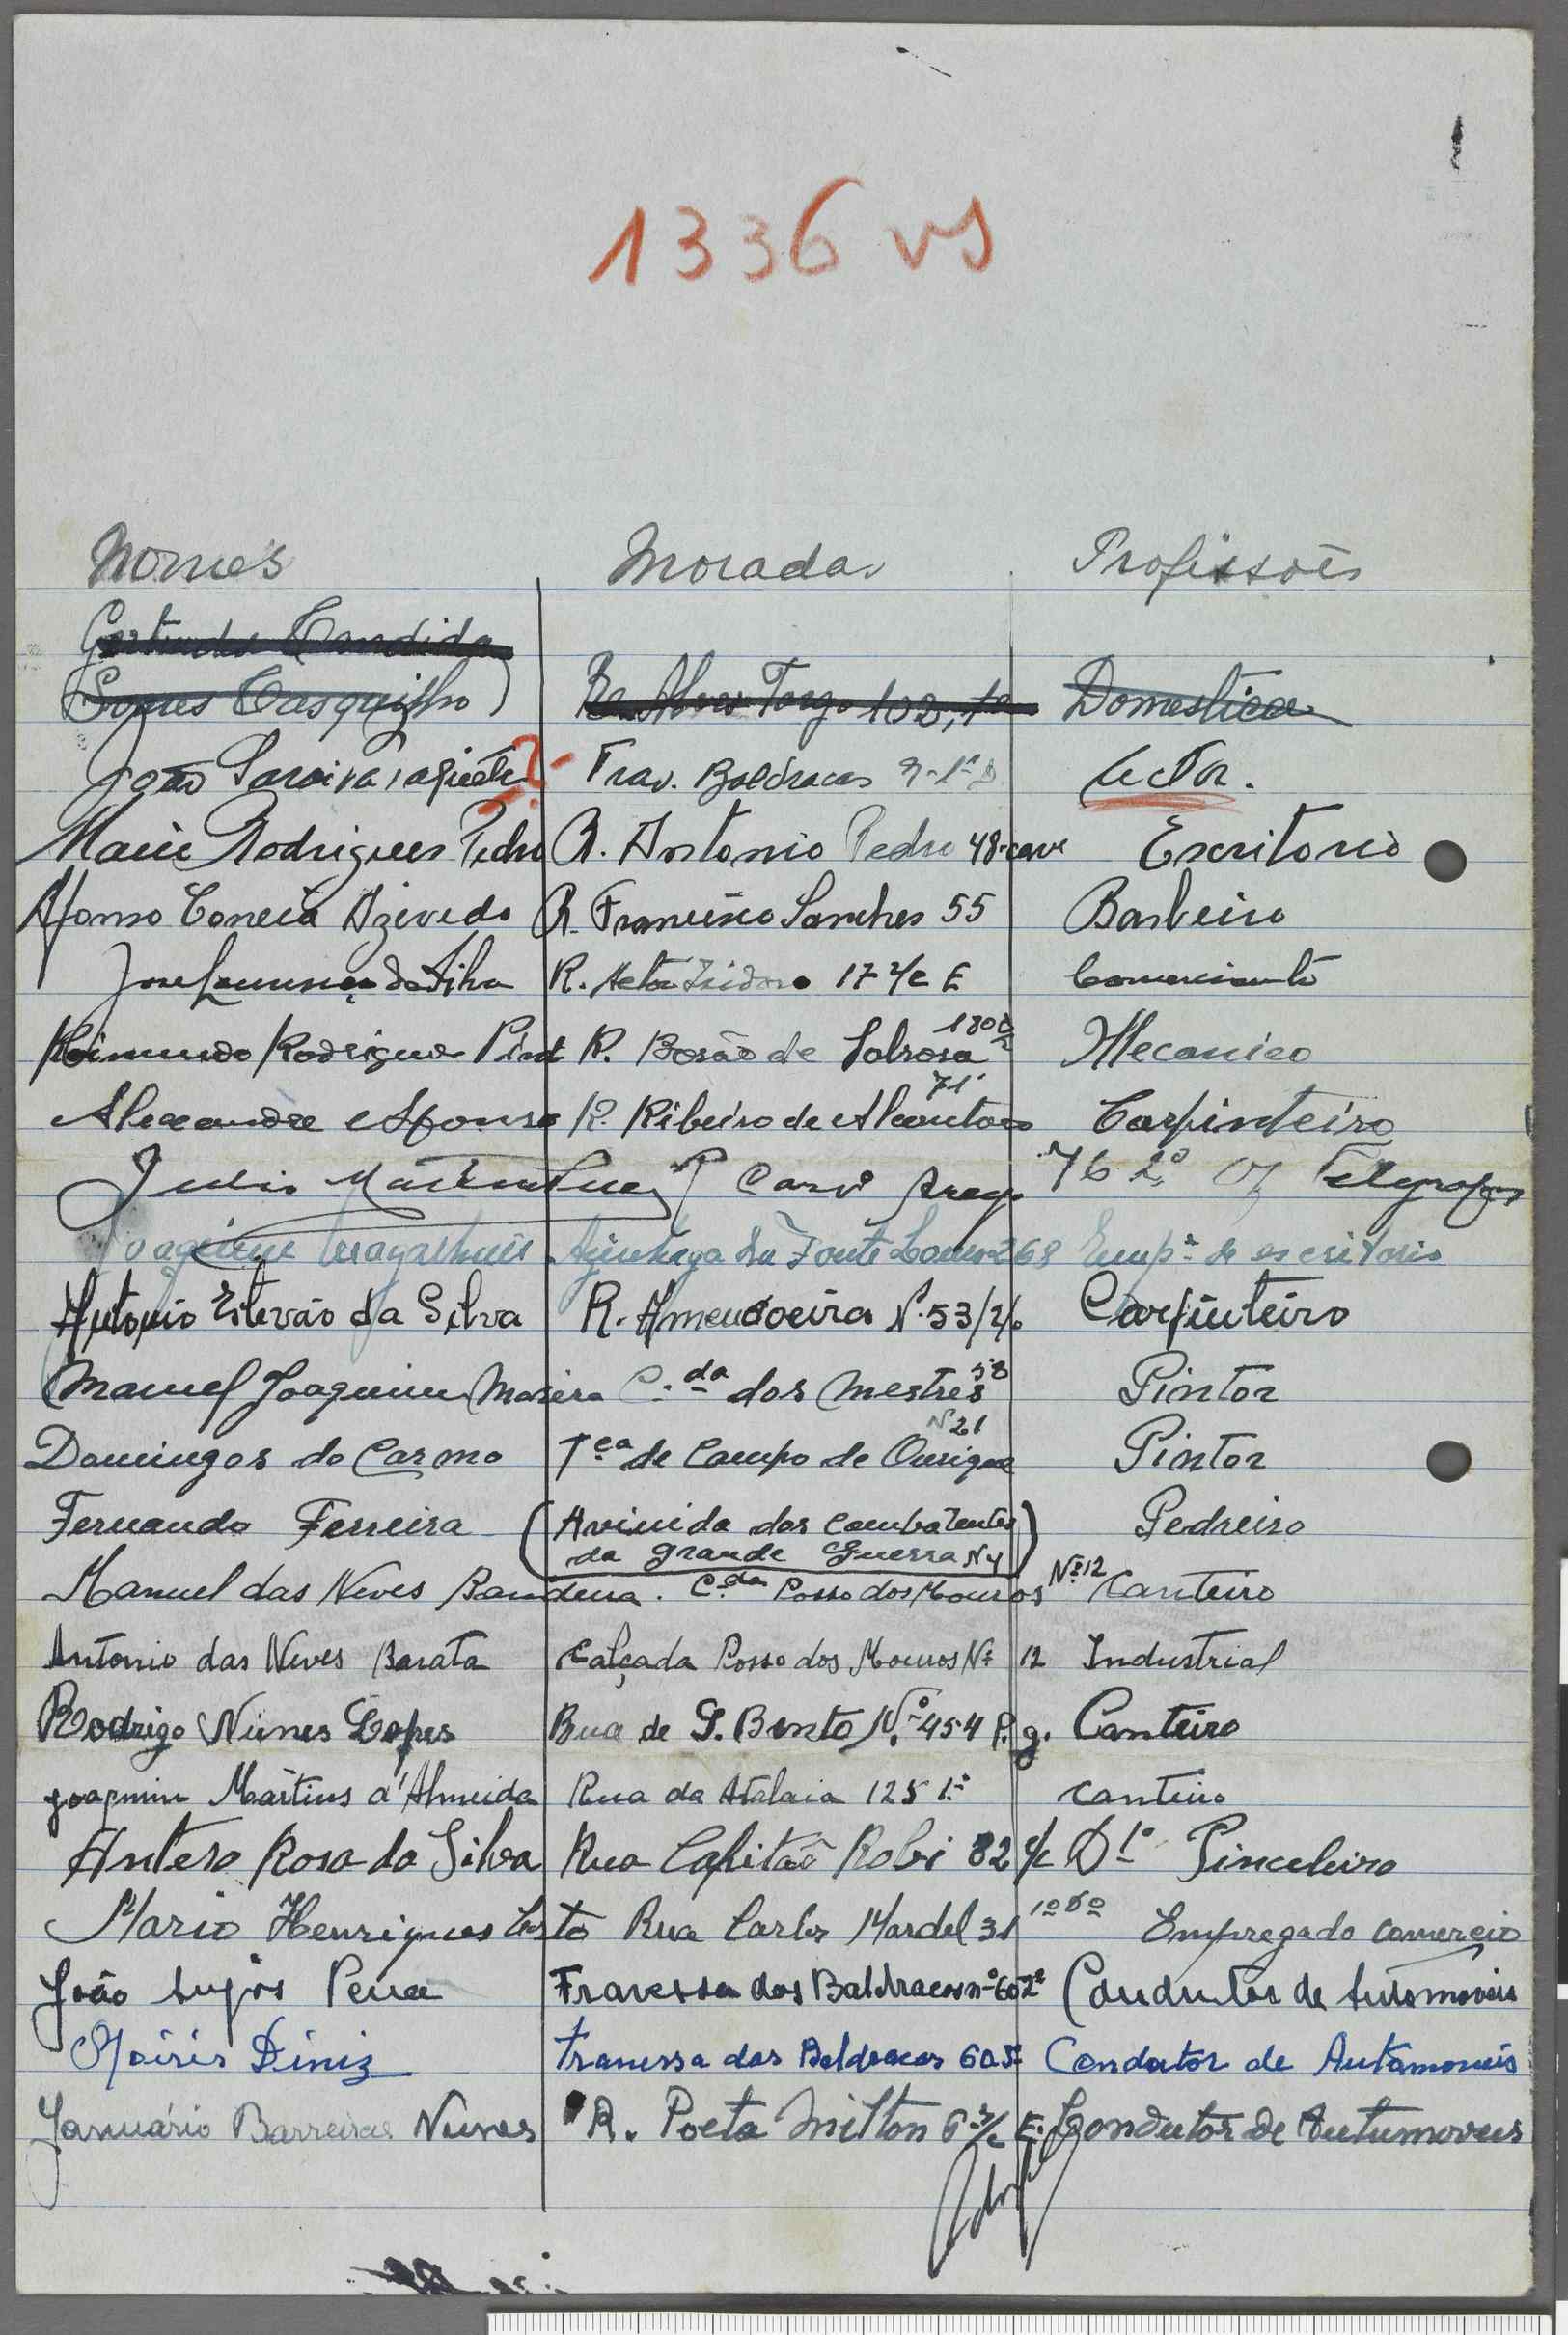 1336 vs
Nomes Moradas Profissões
Gertrudes Candida
Gomes Casquilho R. Alves Torgo 102, 1º Domestica
João Saraiva ? - Trav. Baldracas Actor.
Maria Rodrigues Pedro R. Antonio Pedro 48-cave Escritorio
Afonso Correia Azevedo R. Francisco Sanches 55 Barbeiro
José Lourenço da Silva R. Actor Isidoro 17 r/c E Comerciante
Raimundo Rodrigues Pint R. Barão de Sabrosa 180 Mecanico
Alexandre Afonso R. Ribeiro de Alcantara 71 Carpinteiro
Julio Martin 76 2º Telegrafos
Joaquim Magalhães Azinhaga da Fonte Louro 268 Emp. de escritorio
Antonio Estevão da Silva R. Amendoeira Nº 53/2º Carpinteiro
Manuel Joaquim C.da dos Mestres 58 Pintor
Domingos do Carmo T.ca de Campo de Ourique N 21 Pintor
Fernando Ferreira (Avinida dos Combatentes Pedreiro
da grande Guerra N 4)
Manuel das Neves Bandeira. C.da Posso dos Mouros Nº 12 Canteiro
Antonio das Neves Barata Calçada Posso dos Mouros Nº 12 Industrial
Rodrigo Nunes Lopes Rua de S. Bento Nº 454 P. g. Canteiro
Joaquim Martins d'Almeida Rua da Atalaia 125 1.º Canteiro
Antero Rosa da Silva Rua Capitão Robi 82 r/c Dto Pinceleiro
Mario Henriques Rua Carlos Mardel 31 Empregado comercio
João Anjos Pena Travessa das Baldracas nº 60 2º Condutor de Automoveis
Moisés Diniz Travessa das Baldracas 60 Condutor de Automoveis
Januário Barreiras Nunes R. Poeta Milton 6 r/c E. Condutor de Autumoveis